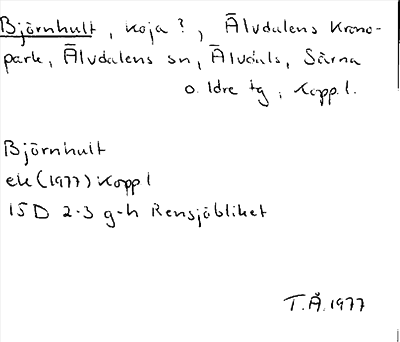 Björnhult, koja?, Älvdalens Krono-
park, Älvdalens sn, Älvdals, Särna
o. Idre tg, Kopp.l.
Björnhult
ek (1977) Kopp l
15D 2-3 g-h Rensjöbliket
T.Å. 1977